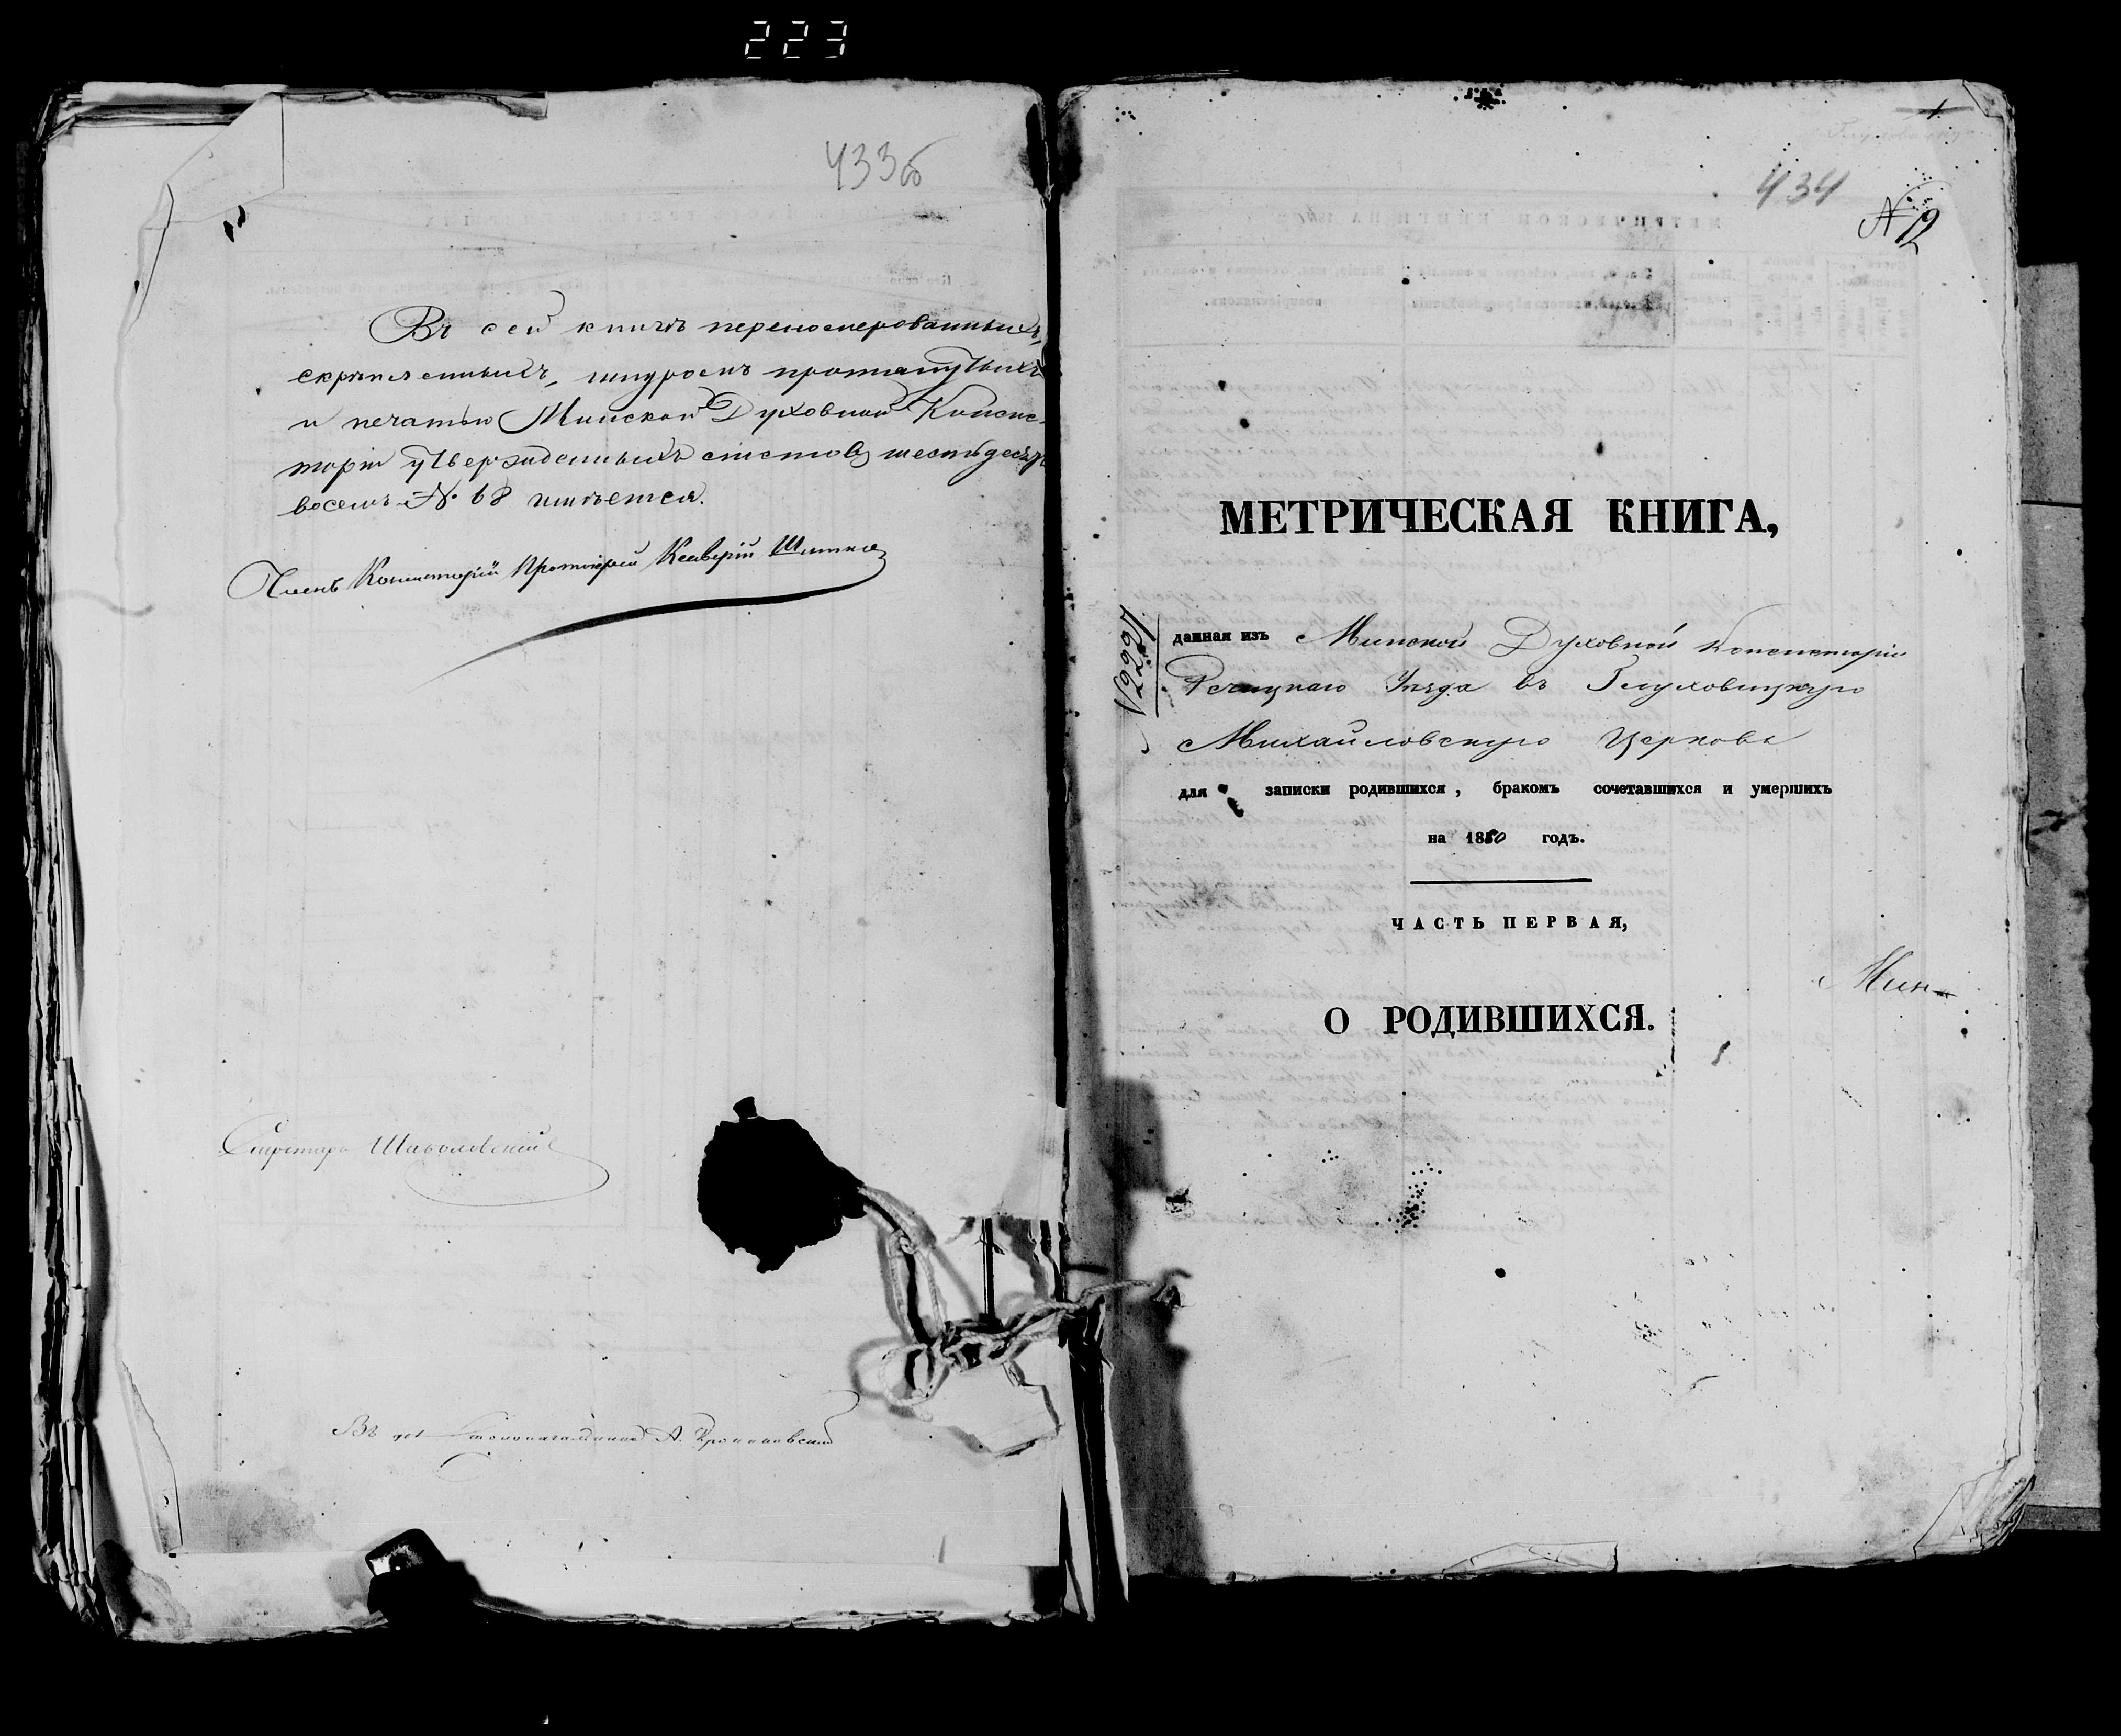 223
433об
Въ сей книгѣ переномерованныхъ,
скрѣпленныхъ, шнуромъ протянутыхъ
и печатью Минской Духовной Консис-
торіи утвержденныхъ листовъ шестьдесятъ
восемь № 68 имѣется.
Членъ Консисторіи Протоіерей Ксаверій
Секретарь
А.
434
№ 12
МЕТРИЧЕСКАЯ КНИГА,
данная изъ Минской Духовной Консисторіи
Речицкаго Уѣзда въ Глуховицкую
Михайловскую Церковь
для записки родившихся, бракомъ сочетавшихся и умершихъ
на 1860 годъ.
ЧАСТЬ ПЕРВАЯ,
Мин-
О РОДИВШИХСЯ.